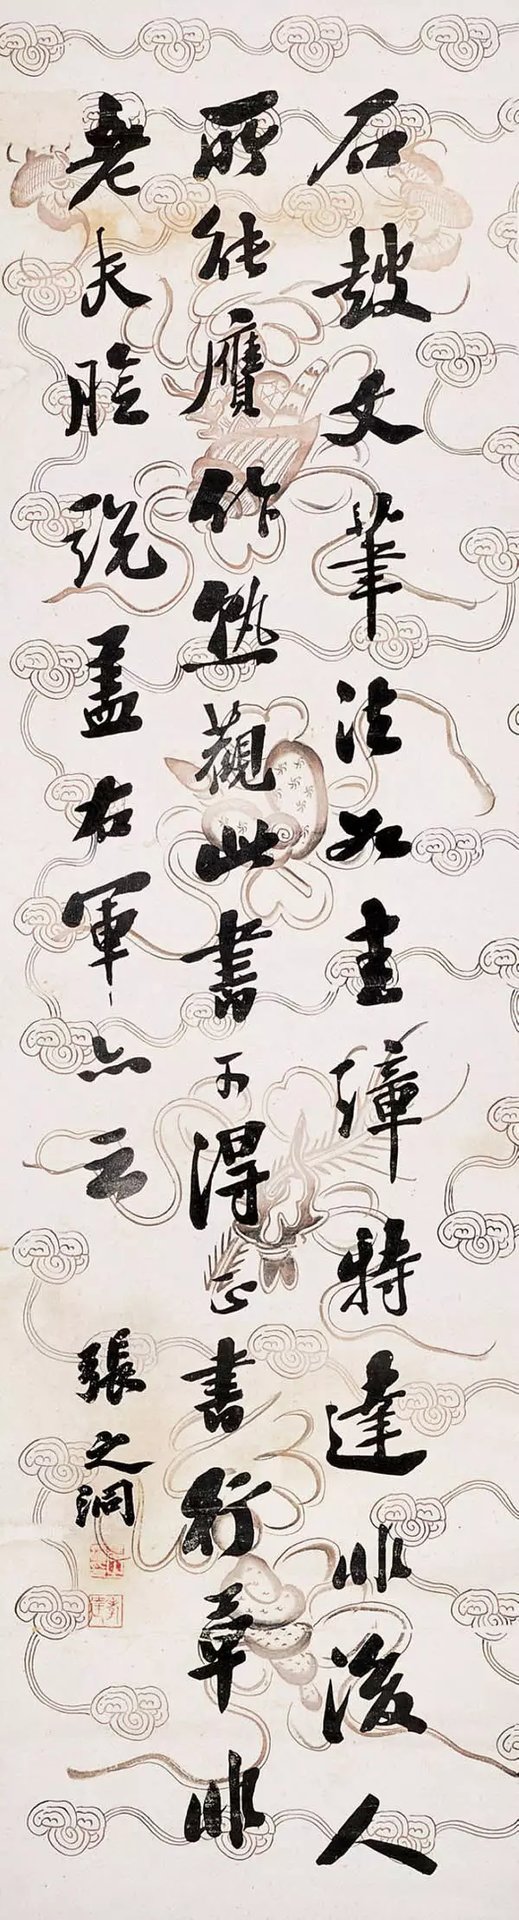 石鼓文筆法如圭璋特達非後人
所能贋作熟觀此書可得正書行草非
老夫臆説盖右軍亦云
張之洞